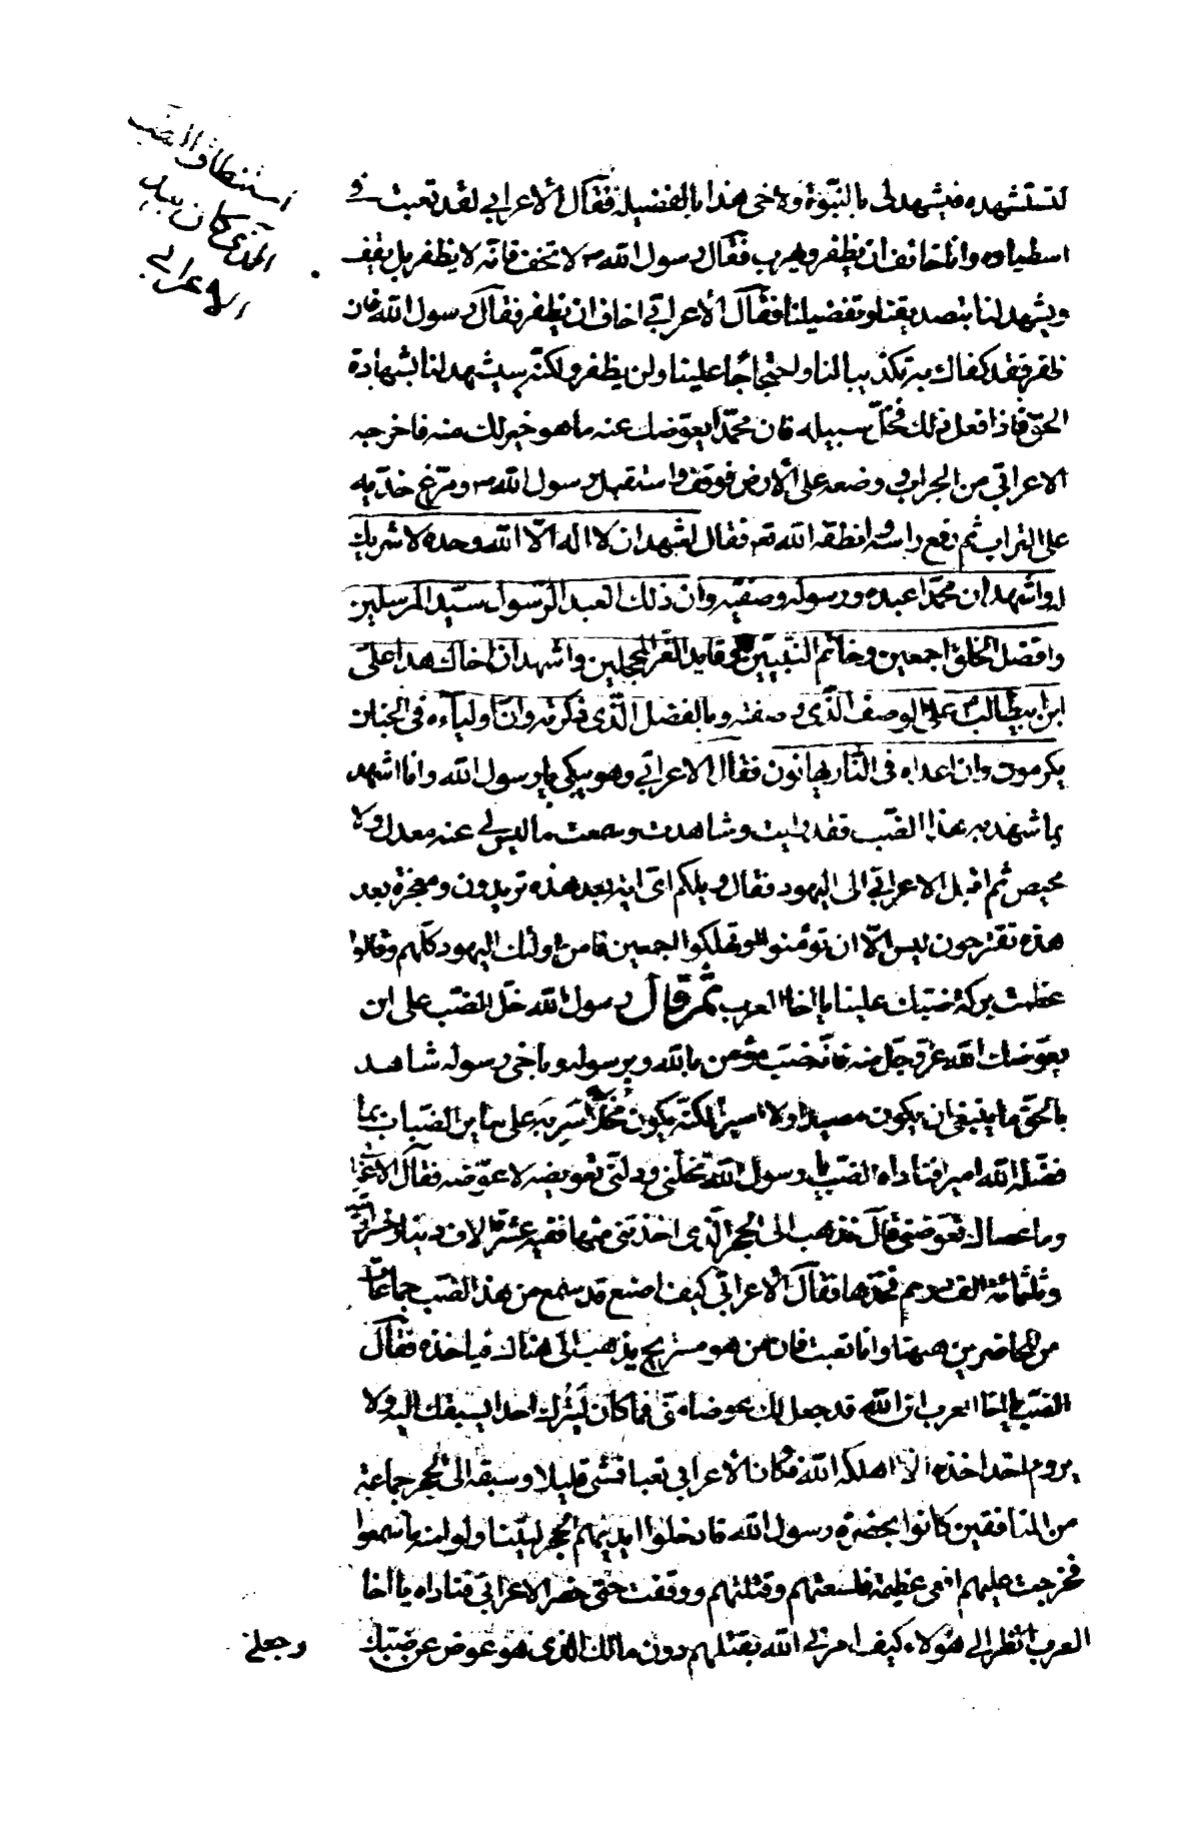 استنطاق الضب
الذي كان بيد
الاعرابي
لتستشهده فيشهد لي بالنبوة ولاخي هذا بالفضيلة فقال الاعرابي لقد تعبت في
اصطياده وانا خائف ان يظفر ويهرب فقال رسول الله لا تخف فانه لا يظفر بل يقف
ويشهد لنا بتصديقنا وتفضيلنا فقال الاعرابي اخاف ان يظفر فقال رسول الله فان
ظفر فقد كفاك به تكذيبا لنا واحتجاجا علينا ولن يظفر ولكنه سيشهد لنا بشهادة
الحق فاذا فعل ذلك فخل سبيله فان محمدا يعوضك عنه ما هو خير لك منه فاخرجه
الاعرابي من الجراب ووضعه على الارض فوقف واستقبل رسول الله ومرغ خديه
على التراب ثم رفع راسه وانطقه الله تعم فقال اشهد ان لا اله الا الله وحده لا شريك
له واشهد ان محمدا عبده ورسوله وصفيه وان ذلك العبد الرسول سيد المرسلين
وافضل الخلق اجمعين وخاتم النبيين وقايد الغر المحجلين واشهد ان اخاك هذا علي
ابن ابيطالب على الوصف الذي وصفته وبالفضل الذي ذكرته وان اولياءه في الجنان
يكرمون وان اعداه في النار يهانون فقال الاعرابي وهو يبكي يا رسول الله وانا اشهد
بما شهد به هذا الضب فقد رايت وشاهدت وسمعت ما ليس لي عنه معدل ولا
محيص ثم اقبل الاعرابي الى اليهود فقال ويلكم اي اية بعد هذه تريدون ومعجزة بعد
هذه تقترحون ليس الا ان تؤمنوا او تهلكوا اجمعين فامن اولئك اليهود كلهم وقالوا
عظمت بركة ضبك علينا يا اخا العرب ثم قال رسول الله خل الضب على ان
يعوضك الله عز وجل منه فانه ضب مؤمن بالله وبرسوله وباخي رسوله شاهد
بالحق ما ينبغي ان يكون مصيدا ولا اسيرا لكنه يكون مخلا سربه على ساير الضباب بما
فضله الله اميرا فناداه الضب يا رسول الله فخلني وولني تعويضه لاعوضه فقال الاعرابي
وما عساك تعوضني قال تذهب الى الجحر الذي اخذتني منه ففيه عشرة الاف دينار خسروانية
وثلثمائة الف درهم فخذها فقال الاعرابي كيف اصنع قد سمع من هذا الضب جماعات
من الحاضرين ههنا وانا تعب فان من هو مستريح يذهب الى هناك فياخذه فقال
الضب يا اخا العرب ان الله قد جعل لك عوضا مني فما كان ليترك احدا يسبقك اليه ولا
يروم احد اخذه الا اهلكه الله فكان الاعرابي تعبا فمشى قليلا وسبقه الى الجحر جماعة
من المنافقين كانوا بحضرة رسول الله فادخلوا ايديهم الجحر ليتناولوا منه ما سمعوا
فخرجت عليهم افعى عظيمة فلسعتهم وقتلتهم ووقفت حتى حضر الاعرابي فناداه يا اخا
العرب انظر الى هؤلاء كيف امرني الله بقتلهم دون مالك الذي هو عوض عن ضبك
وجعلني